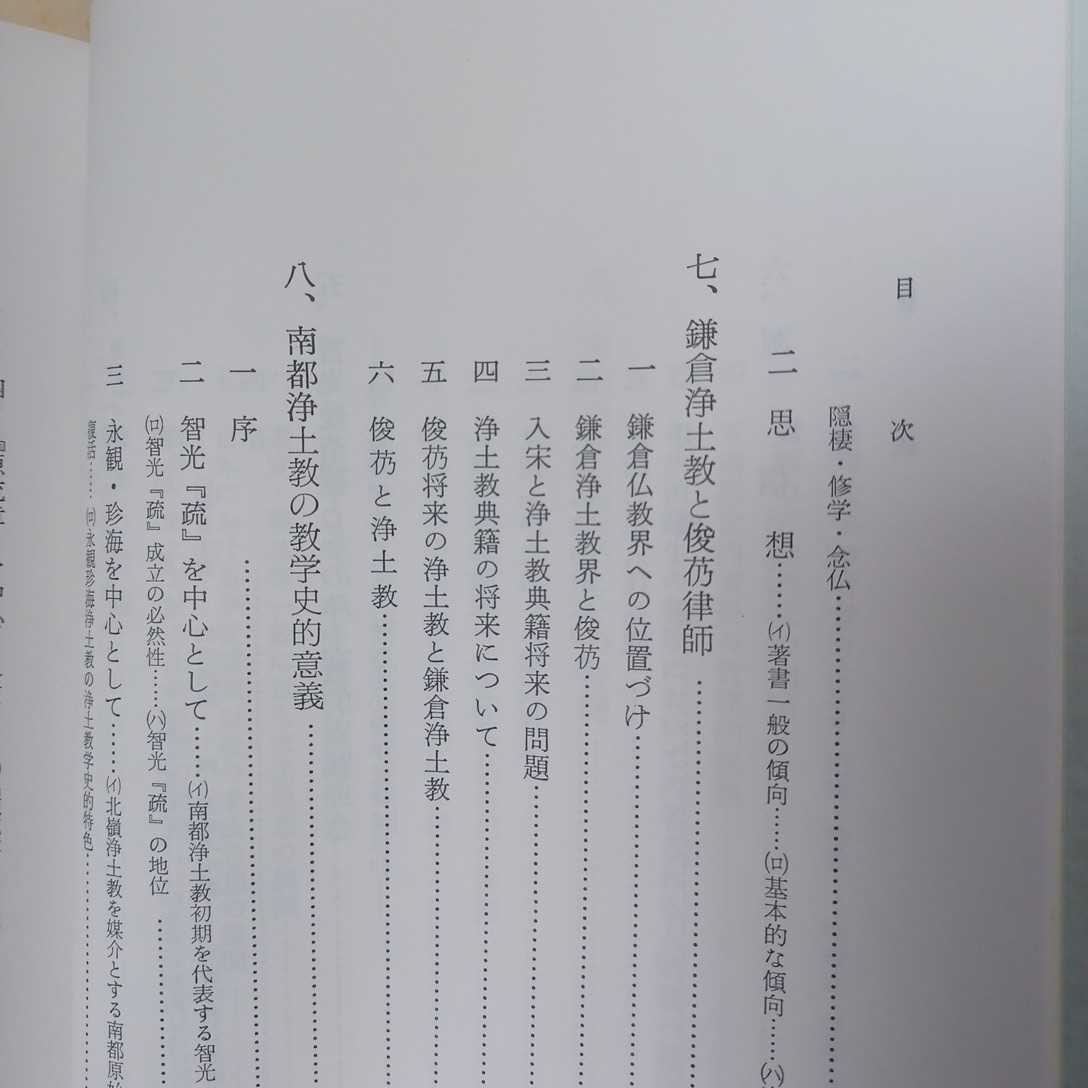 目次
隠棲・修学・念仏……
二 思想……(イ)著書一般の傾向……(ロ)基本的な傾向……(ハ)
七、鎌倉浄土教と俊芿律師……
一 鎌倉仏教界への位置づけ……
二 鎌倉浄土教界と俊芿……
三 入宋と浄土教典籍将来の問題……
四 浄土教典籍の将来について……
五 俊芿将来の浄土教と鎌倉浄土教……
六 俊芿と浄土教……
八、南都浄土教の教学史的意義……
一 序……
二 智光『疏』を中心として……(イ)南都浄土教初期を代表する智光
(ロ)智光『疏』成立の必然性……(ハ)智光『疏』の地位……
三 永観・珍海を中心として……(イ)北嶺浄土教を媒介とする南都原始
復活……(ロ)永観珍海浄土教の浄土教学史的特色……